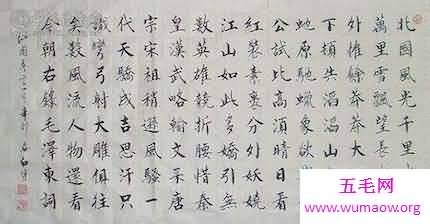 北國風光千里
萬里雪飄望長
外惟餘莽莽大
下頓失滔滔山
蛇原馳蠟象欲
公試比高須晴日看
紅裝素裹分外妖嬈
江山如此多嬌引無
數英雄競折腰惜秦
皇漢武略輸文采唐
宗宋祖稍遜風騷一
代天驕成吉思汗只
識彎弓射大雕俱往
矣數風流人物還看
今朝右錄毛澤東詞
沁園春雪
五毛网
www.wumaow.org